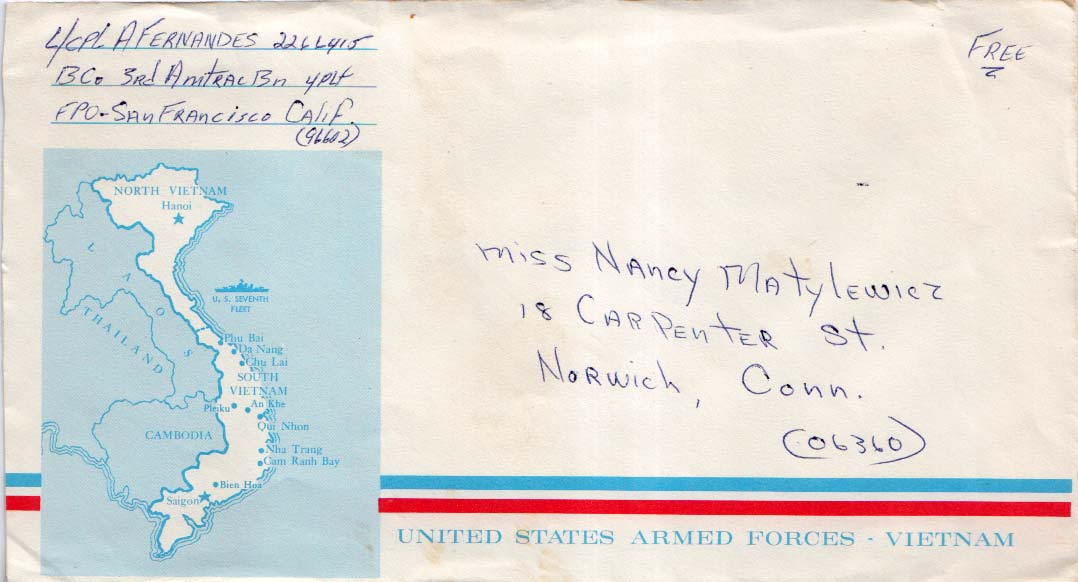 L/CPL A FERNANDES 2266415
FREE
B Co 3rd Amtrac Bn 4 Plt
FPO-San Francisco Calif.
(96602)
NORTH VIETNAM
Hanoi
LAOS
U. S. SEVENTH
FLEET
THAILAND
Phu Bai
Da Nang
Chu Lai
SOUTH
VIETNAM
Pleiku
An Khe
Qui Nhon
CAMBODIA
Nha Trang
Cam Ranh Bay
Bien Hoa
Saigon
Miss Nancy Matylewicz
18 Carpenter St.
Norwich, Conn.
(06360)
UNITED STATES ARMED FORCES - VIETNAM